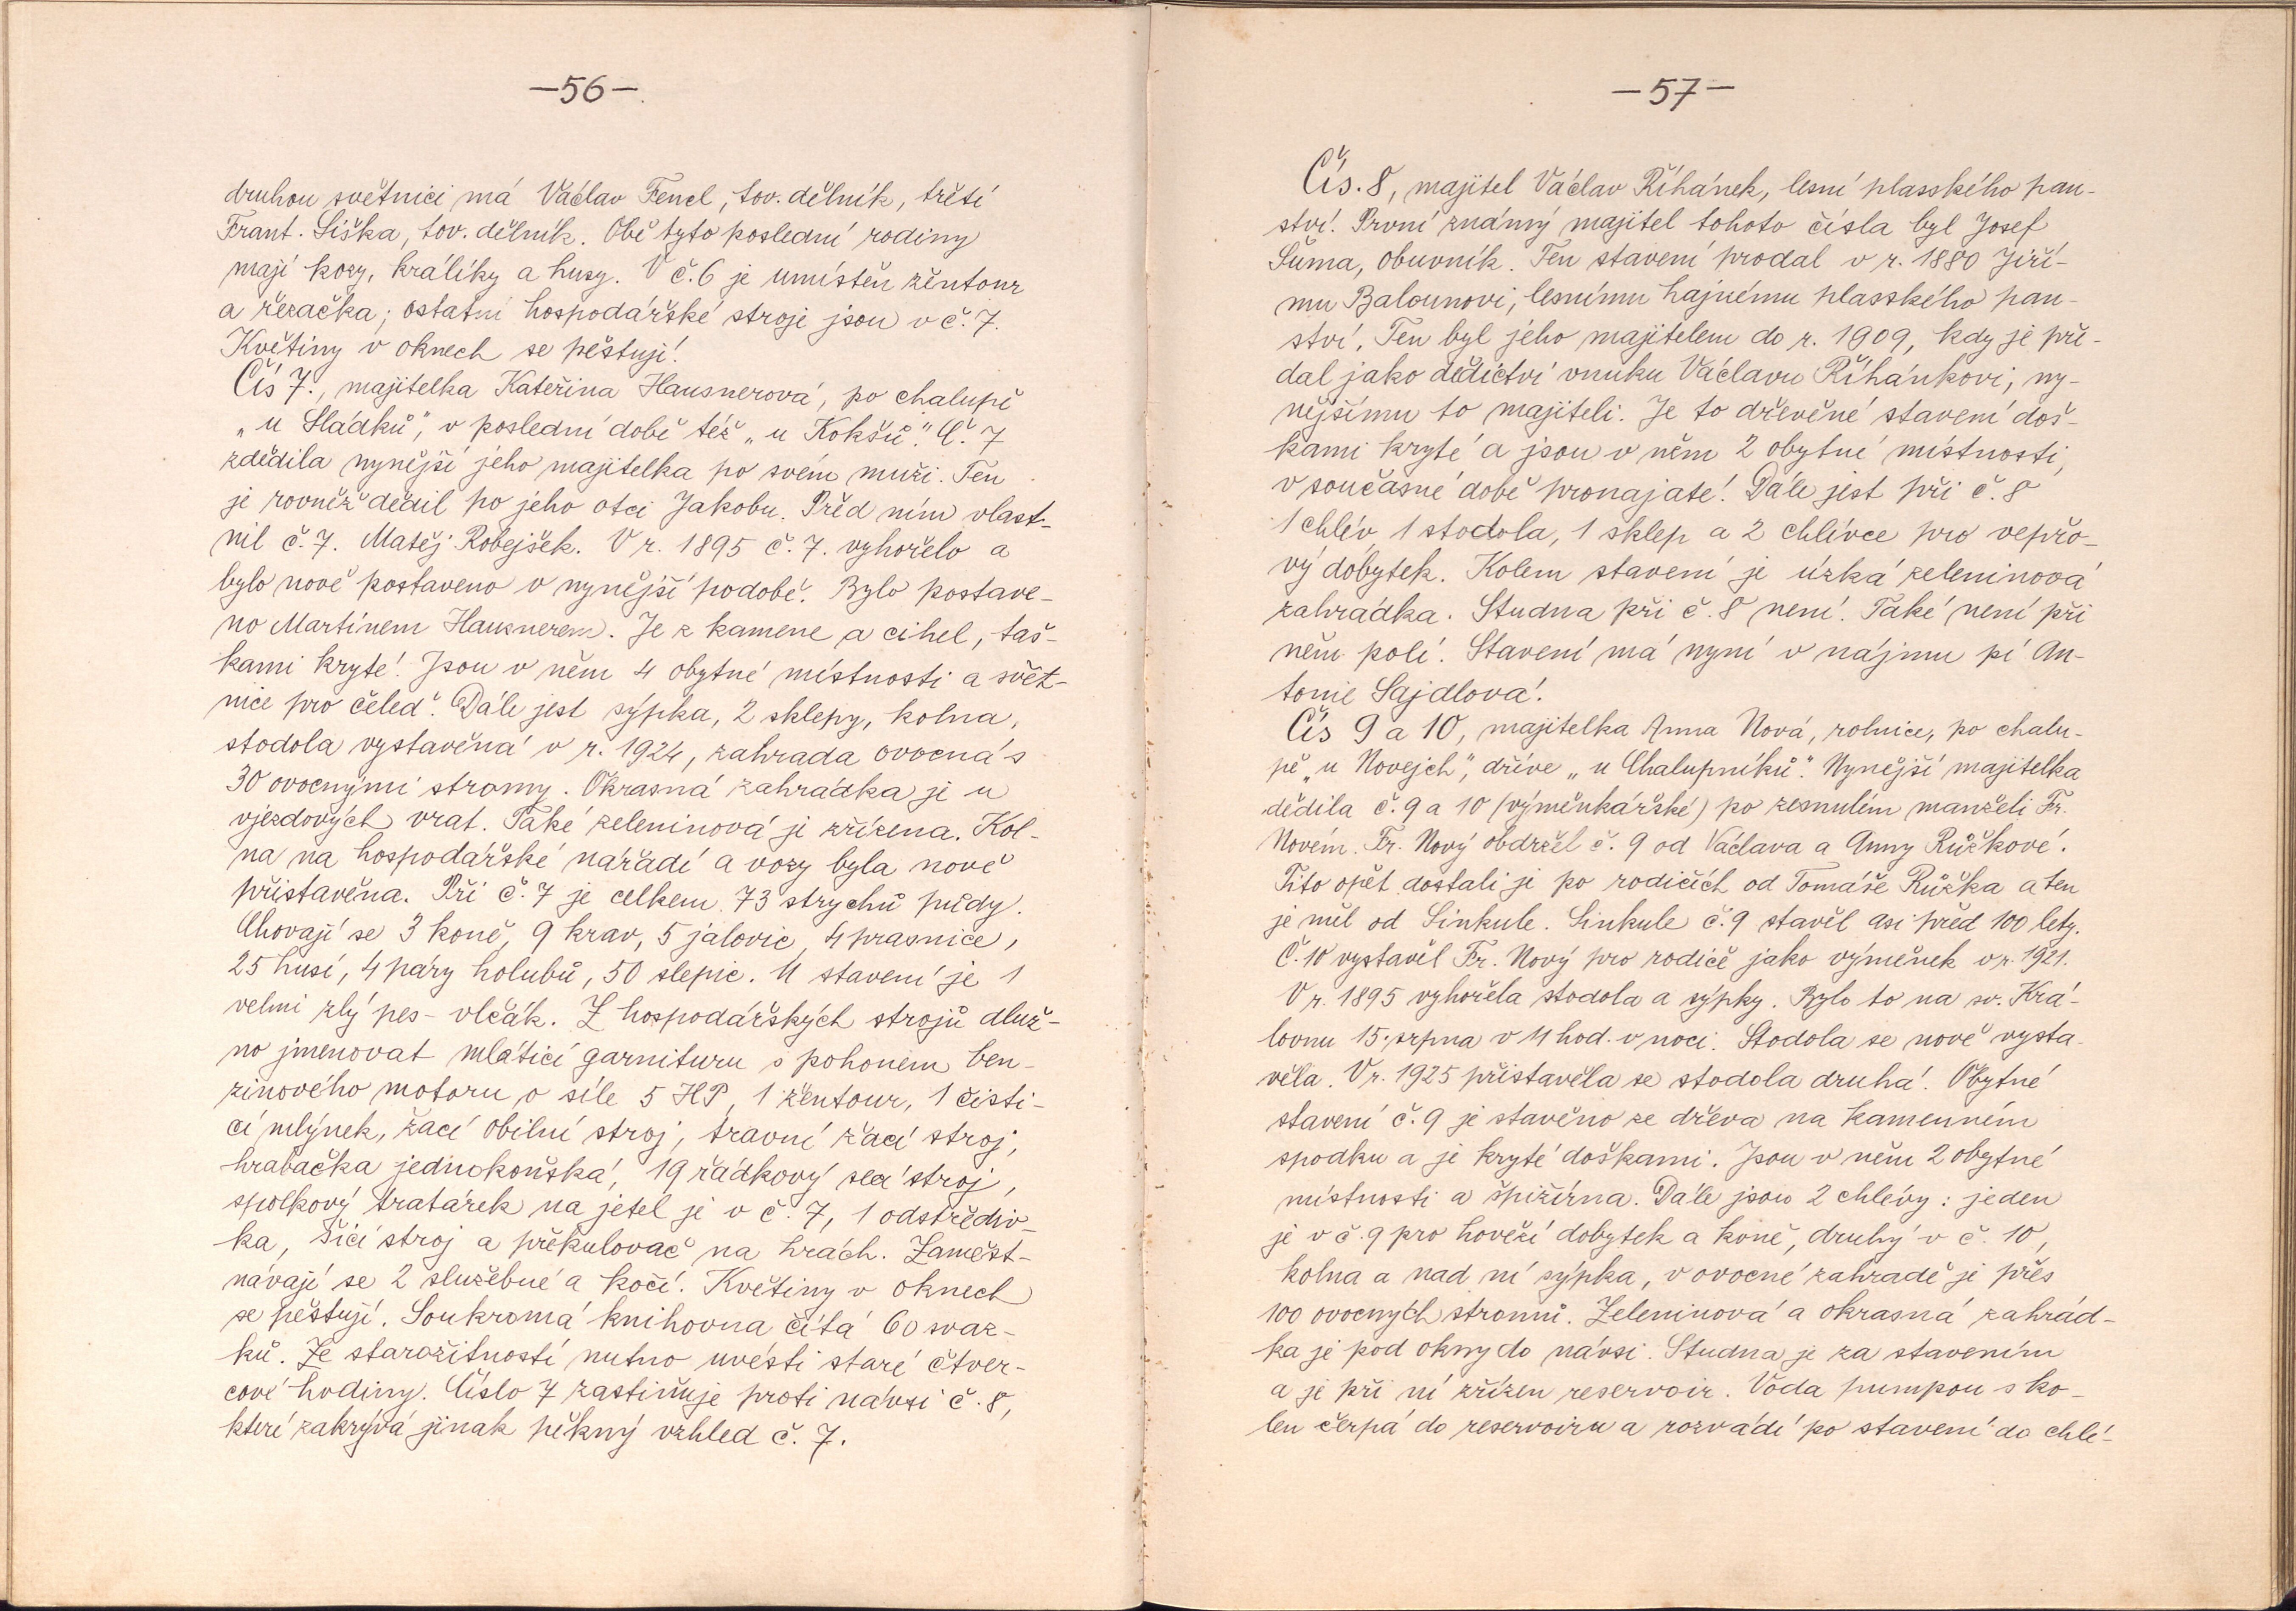 —56—
druhou světnici má Václav Fencl, tov. dělník, třetí
Frant. Šiška, tov. dělník. Obě tyto poslední rodiny
mají kozy, králíky a husy. V č. 6 je umístěn žentour
a řezačka; ostatní hospodářské stroje jsou v č. 7.
Květiny v oknech se pěstují.
Čís 7., majitelka Kateřina Hausnerová, po chalupě
„u Sládků", v poslední době též „u Kokšů". Č. 7
zdědila nynější jeho majitelka po svém muži. Ten
je rovněž dědil po jeho otci Jakobu. Před ním vlast-
nil č. 7. Matěj Robejšek. V r. 1895 č. 7. vyhořelo a
bylo nově postaveno v nynější podobě. Bylo postave-
no Martinem Hausnerem. Je z kamene a cihel, taš-
kami kryté. Jsou v něm 4 obytné místnosti a svět-
nice pro čeleď. Dále jest sýpka, 2 sklepy, kolna,
stodola vystavěná v r. 1924, zahrada ovocná s
30 ovocnými stromy. Okrasná zahrádka je u
vjezdových vrat. Také zeleninová je zřízena. Kol-
na na hospodářské nářadí a vozy byla nově
přistavěna. Při č. 7 je celkem 73 strychů půdy.
Chovají se 3 koně, 9 krav, 5 jalovic, 4 prasnice,
25 husí, 4 páry holubů, 50 slepic. U stavení je 1
velmi zlý pes - vlčák. Z hospodářských strojů dluž-
no jmenovat mlátící garnituru s pohonem ben-
zinového motoru o síle 5 HP, 1 žentour, 1 čistí-
cí mlýnek, žací obilní stroj, travní žací stroj,
hrabačka jednokoňská, 19 řádkový secí stroj,
spolkový tratárek na jetel je v č. 7, 1 odstřediv-
ka, šicí stroj a překulovač na hrách. Zaměst-
návají se 2 služebné a kočí. Květiny v oknech
se pěstují. Soukromá knihovna čítá 60 svaz-
ků. Ze starožitností nutno uvésti staré čtver-
cové hodiny. Číslo 7 zastiňuje proti návsi č. 8,
které zakrývá jinak pěkný vzhled č. 7.
—57—
Čís. 8, majitel Václav Říhánek, lesní plasského pan-
ství. První známý majitel tohoto čísla byl Josef
Šuma, obuvník. Ten stavení prodal v r. 1880 Jiří-
mu Balounovi, lesnímu hajnému plasského pan-
ství. Ten byl jeho majitelem do r. 1909, kdy je pře-
dal jako dědictví vnuku Václavu Říhánkovi, ny-
nějšímu to majiteli. Je to dřevěné stavení doš-
kami kryté a jsou v něm 2 obytné místnosti,
v současné době pronajaté. Dále jest při č. 8
1 chlév, 1 stodola, 1 sklep a 2 chlívce pro vepřo-
vý dobytek. Kolem stavení je úzká zeleninová
zahrádka. Studna při č. 8 není. Také není při
něm polí. Stavení má nyní v nájmu pí An-
tonie Sajdlová.
Čís 9 a 10, majitelka Anna Nová, rolnice, po chalu-
pě „u Novejch", dříve „u Chalupníků". Nynější majitelka
dědila č. 9 a 10 (výměnkářské) po zesnulém manželi Fr.
Novém. Fr. Nový obdržel č. 9 od Václava a Anny Růžkové.
Tito opět dostali je po rodičích od Tomáše Růžka a ten
je měl od Sinkule. Sinkule č. 9 stavěl asi před 100 lety.
Č. 10 vystavěl Fr. Nový pro rodiče jako výměnek v r. 1921.
V r. 1895 vyhořela stodola a sýpky. Bylo to na sv. Krá-
lovnu 15. srpna v 11 hod. v noci. Stodola se nově vysta-
věla. V r. 1925 přistavěla se stodola druhá. Obytné
stavení č. 9 je stavěno ze dřeva na kamenném
spodku a je kryté doškami. Jsou v něm 2 obytné
místnosti a špižírna. Dále jsou 2 chlévy: jeden
je v č. 9 pro hovězí dobytek a koně, druhý v č. 10,
kolna a nad ní sýpka, v ovocné zahradě je přes
100 ovocných stromů. Zeleninová a okrasná zahrád-
ka je pod okny do návsi. Studna je za stavením
a je při ní zřízen reservoir. Voda pumpou s ko-
len čerpá do reservoiru a rozvádí po stavení do chlé-